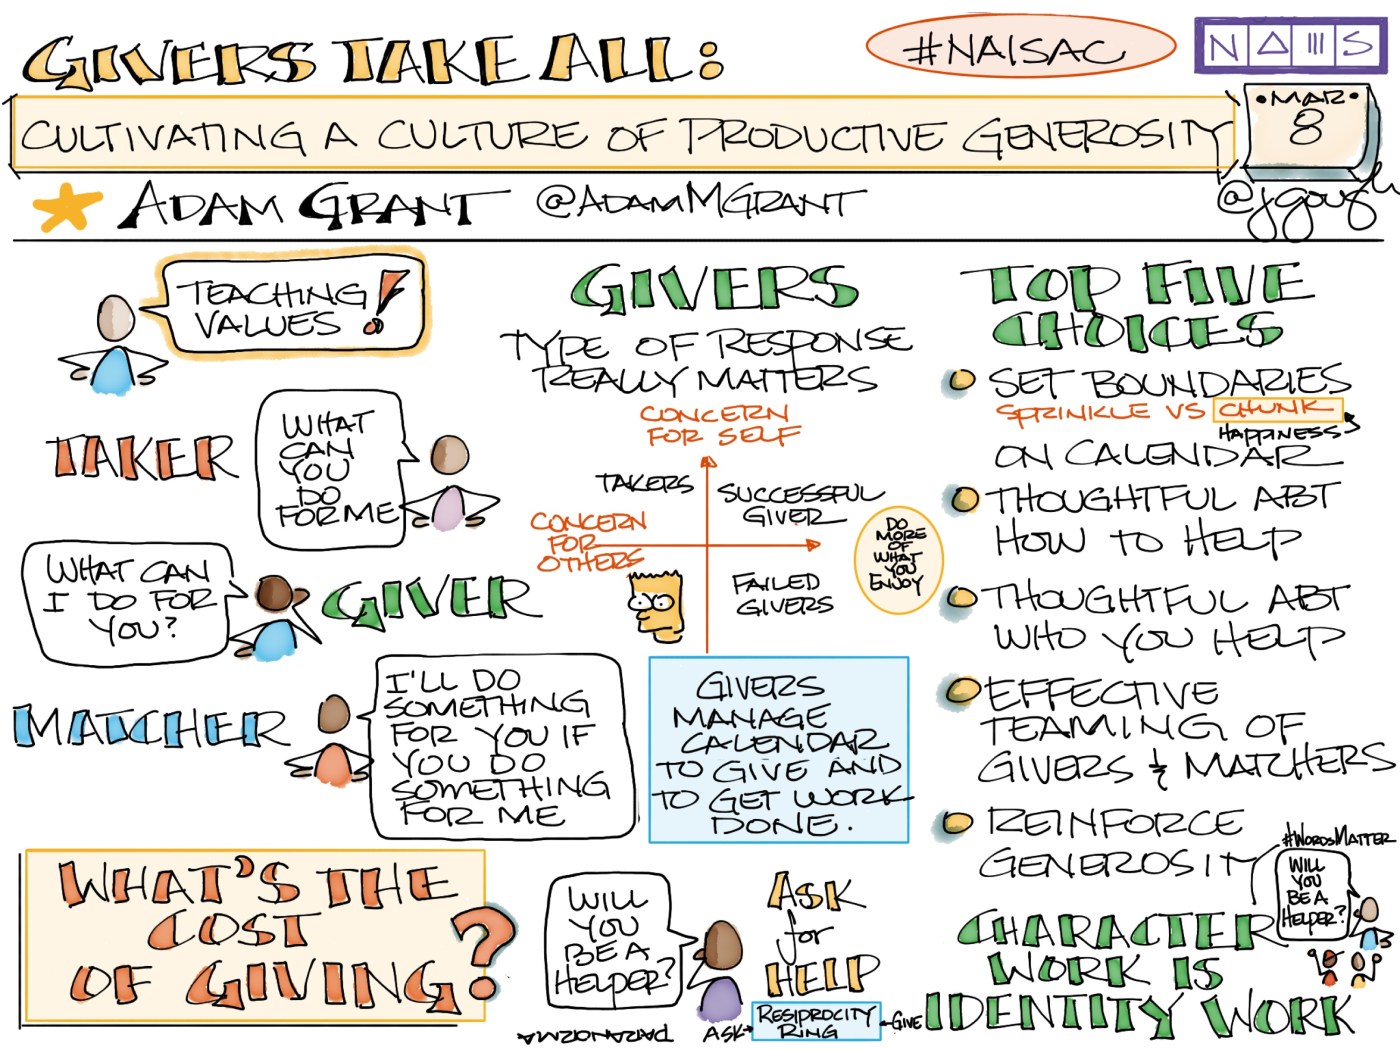 GIVERS TAKE ALL:
#NAISAC
NAIS
CULTIVATING A CULTURE OF PRODUCTIVE GENEROSITY
MAR
8
ADAM GRANT @ADAMMGRANT
@jgough
TEACHING
VALUES!
TAKER
WHAT
CAN
YOU
DO
FOR ME
WHAT CAN
I DO FOR
YOU?
GIVER
MATCHER
I'LL DO
SOMETHING
FOR YOU IF
YOU DO
SOMETHING
FOR ME
WHAT'S THE
COST
OF GIVING?
GIVERS
TYPE OF RESPONSE
REALLY MATTERS
CONCERN
FOR SELF
TAKERS
SUCCESSFUL
GIVER
CONCERN
FOR
OTHERS
FAILED
GIVERS
DO
MORE
OF
WHAT
YOU
ENJOY
GIVERS
MANAGE
CALENDAR
TO GIVE AND
TO GET WORK
DONE.
WILL
YOU
BE A
HELPER?
ASK
for
HELP
ASK
RESIPROCITY
RING
GIVE
PAIRANOIZMA
TOP FIVE
CHOICES
SET BOUNDARIES
SPRINKLE VS CHUNK
HAPPINESS
ON CALENDAR
THOUGHTFUL ABT
HOW TO HELP
THOUGHTFUL ABT
WHO YOU HELP
EFFECTIVE
TEAMING OF
GIVERS & MATCHERS
REINFORCE
GENEROSITY
#WORDSMATTER
WILL
YOU
BE A
HELPER?
CHARACTER
WORK IS
IDENTITY WORK